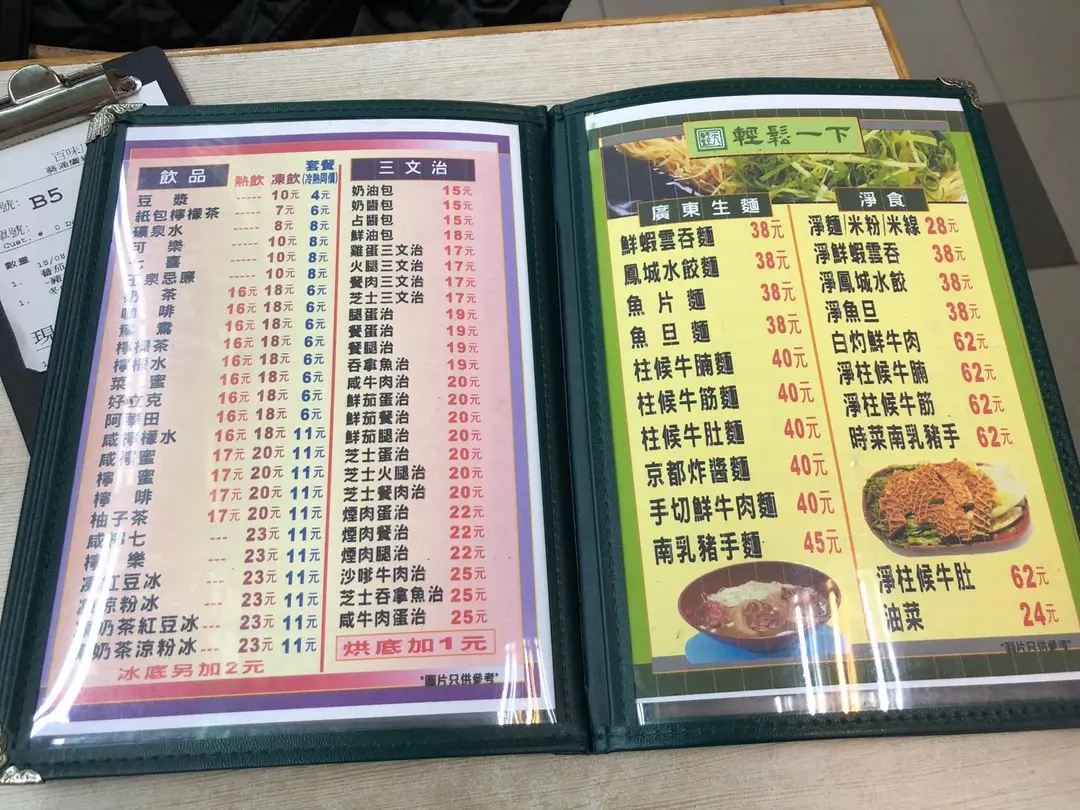 百味
B5
Cust.
數量
飲品 熱飲 凍飲 套餐
(冷熱同價)
豆漿 ----- 10元 4元
紙包檸檬茶 ----- 7元 6元
礦泉水 ----- 8元 8元
可樂 ----- 10元 8元
七喜 ----- 10元 8元
玉泉忌廉 ----- 10元 8元
奶茶 16元 18元 6元
咖啡 16元 18元 6元
鴛鴦 16元 18元 6元
檸檬茶 16元 18元 6元
檸檬水 16元 18元 6元
菜蜜 16元 18元 6元
好立克 16元 18元 6元
阿華田 16元 18元 6元
咸檸檬水 16元 18元 11元
咸檸蜜 17元 20元 11元
檸蜜 17元 20元 11元
檸啡 17元 20元 11元
柚子茶 17元 20元 11元
咸檸七 --- 23元 11元
檸樂 --- 23元 11元
凍紅豆冰 --- 23元 11元
涼粉冰 --- 23元 11元
奶茶紅豆冰 --- 23元 11元
奶茶涼粉冰 --- 23元 11元
冰底另加2元
三文治
奶油包 15元
奶醬包 15元
占醬包 15元
鮮油包 18元
雞蛋三文治 17元
火腿三文治 17元
餐肉三文治 17元
芝士三文治 17元
腿蛋治 19元
餐蛋治 19元
餐腿治 19元
吞拿魚治 19元
咸牛肉治 20元
鮮茄蛋治 20元
鮮茄餐治 20元
鮮茄腿治 20元
芝士蛋治 20元
芝士火腿治 20元
芝士餐肉治 20元
煙肉蛋治 22元
煙肉餐治 22元
煙肉腿治 22元
沙嗲牛肉治 25元
芝士吞拿魚治 25元
咸牛肉蛋治 25元
烘底加1元
*圖片只供參考*
輕鬆一下
廣東生麵
鮮蝦雲吞麵 38元
鳳城水餃麵 38元
魚片麵 38元
魚旦麵 38元
柱候牛腩麵 40元
柱候牛筋麵 40元
柱候牛肚麵 40元
京都炸醬麵 40元
手切鮮牛肉麵 40元
南乳豬手麵 45元
淨食
淨麵|米粉|米線 28元
淨鮮蝦雲吞 38元
淨鳳城水餃 38元
淨魚旦 38元
白灼鮮牛肉 62元
淨柱候牛腩 62元
淨柱候牛筋 62元
時菜南乳豬手 62元
淨柱候牛肚 62元
油菜 24元
*圖片只供參考*